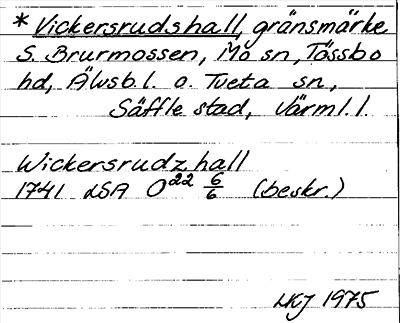 * Vickersrudshall, gränsmärke
S. Brurmossen, Mo sn, Tössbo
hd, Älvsb.l. o. Tveta sn,
Säffle stad, Värml.l.
Wickersrudz hall
1741 LSA O22 6/6 (beskr.)
LKJ 1975